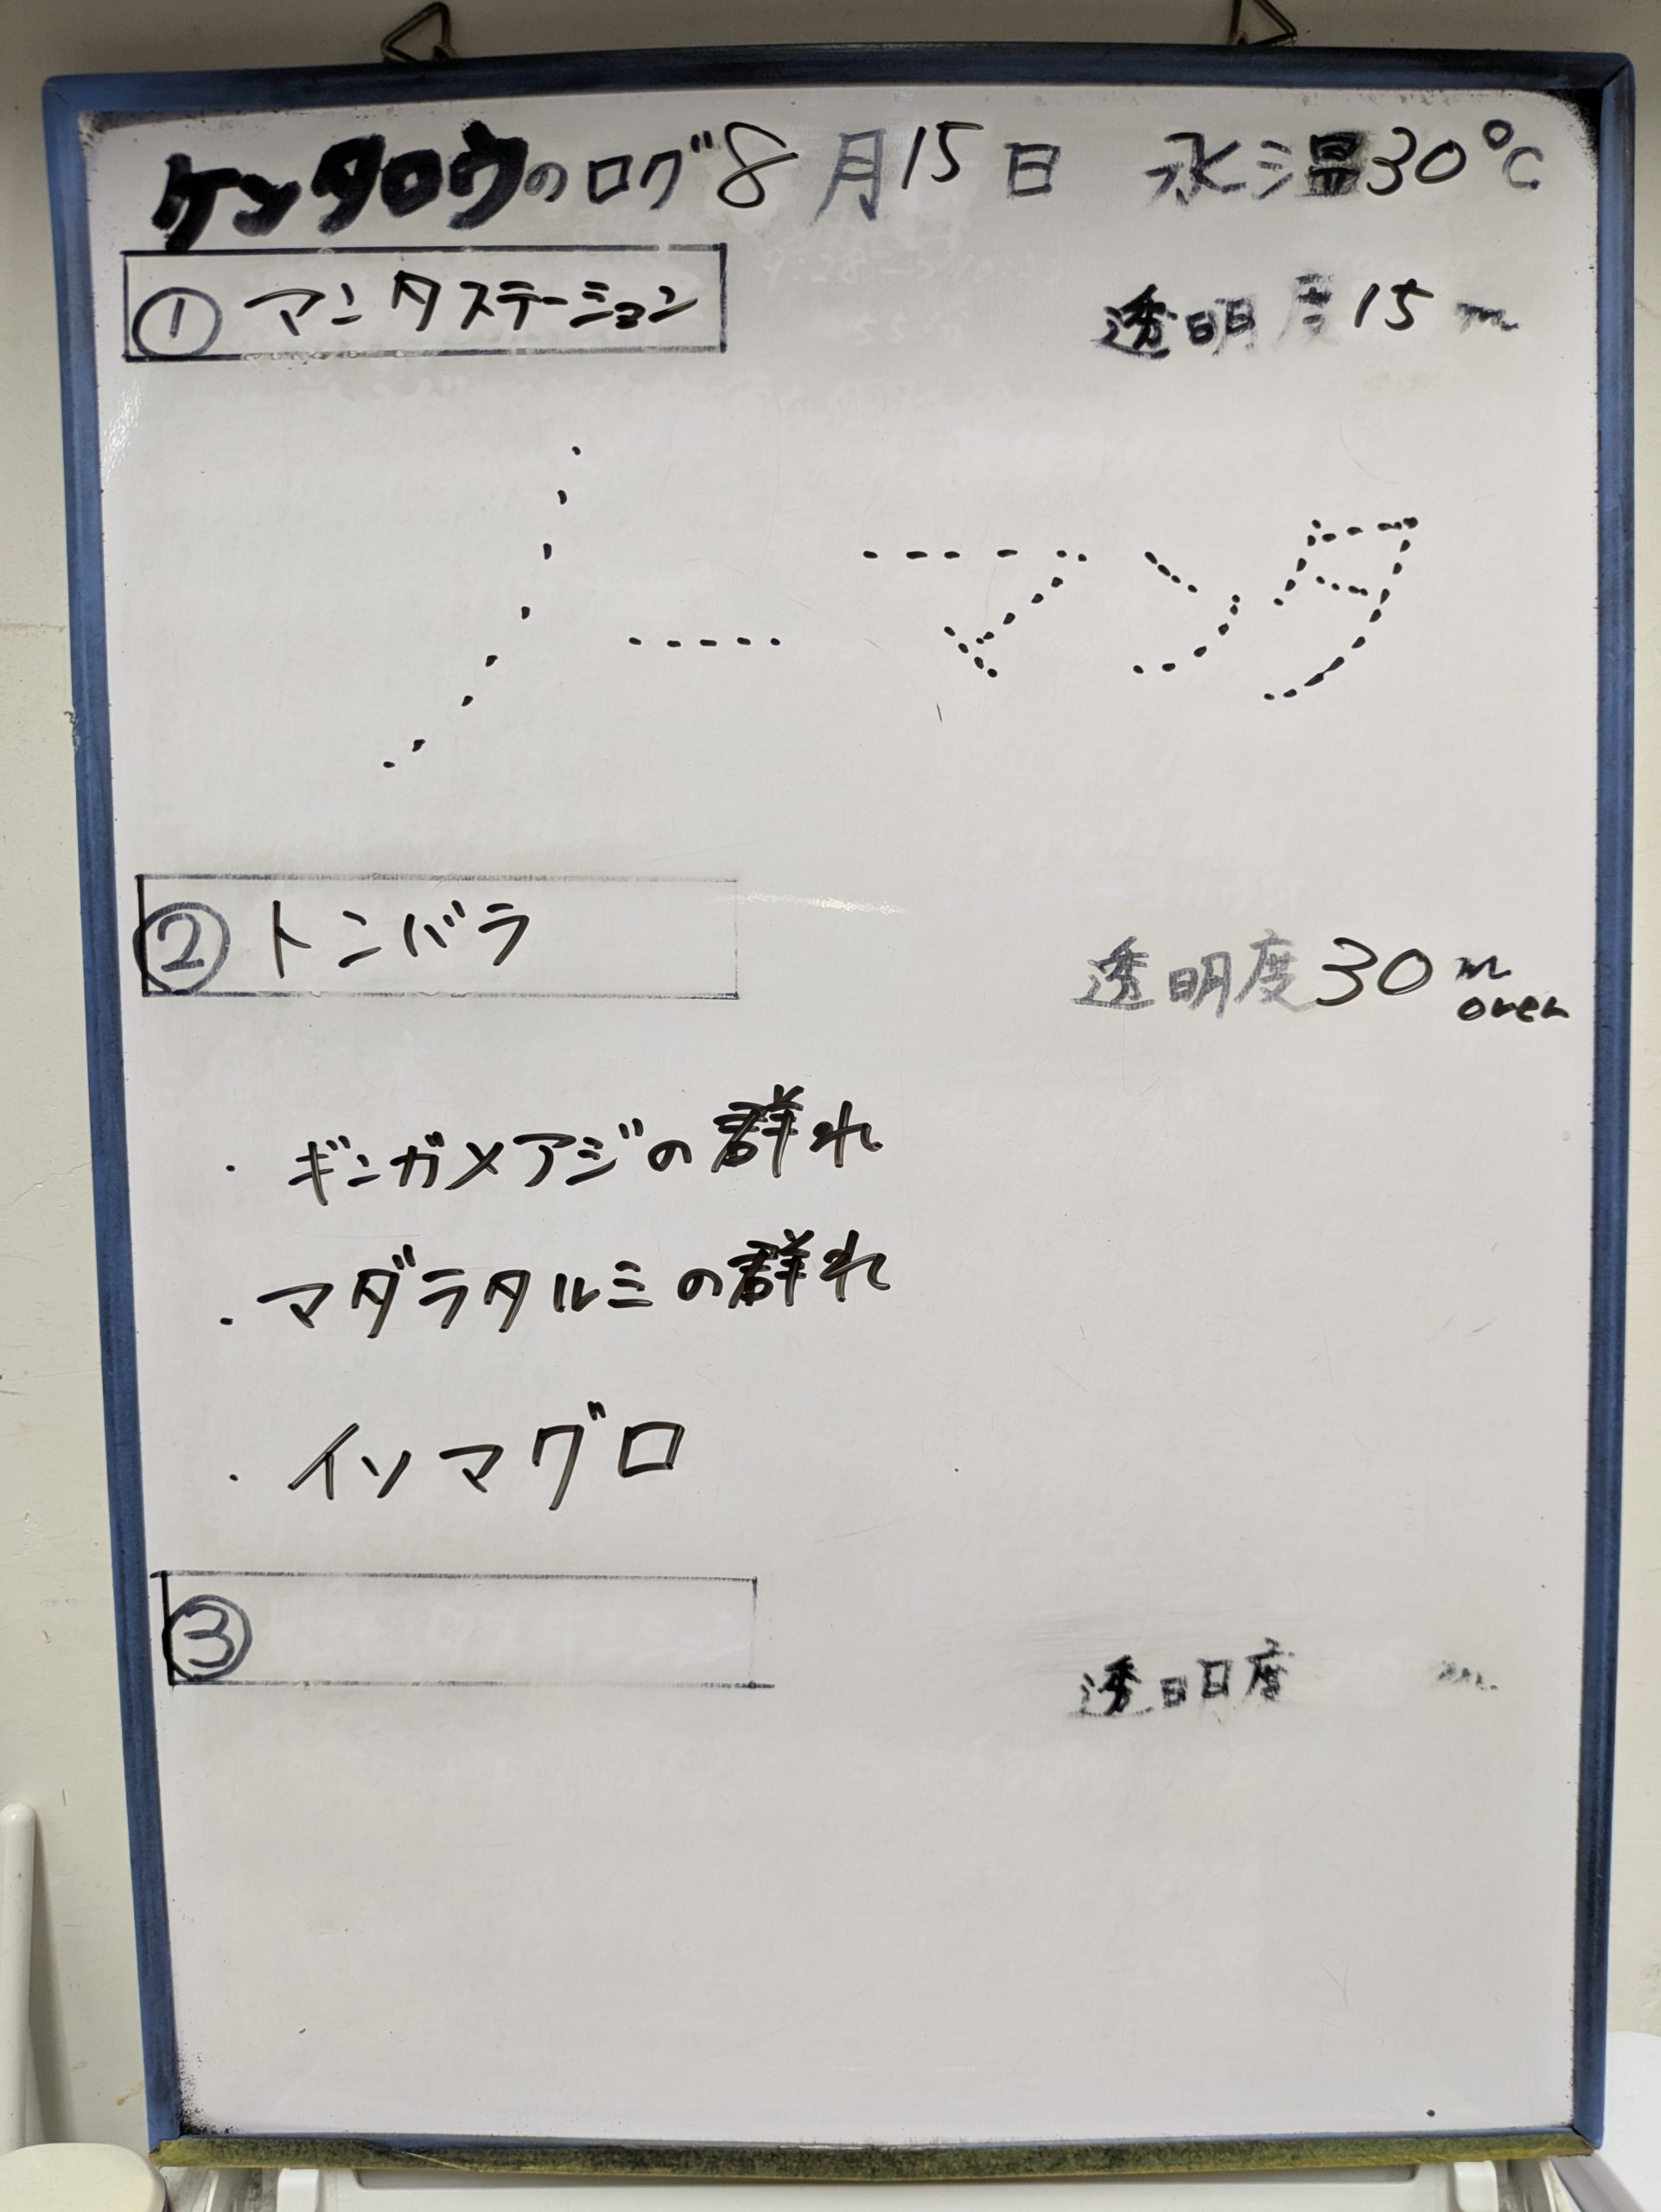 ケンタロウのログ 8月15日 水温30℃
① マンタステーション 透明度15m
ノーマンタ
② トンバラ 透明度30m
over
・ギンガメアジの群れ
・マダラタルミの群れ
・イソマグロ
③ 透明度 m